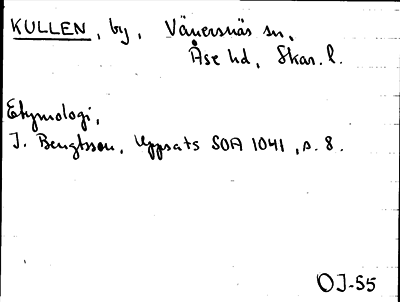 KULLEN, by, Vänersnäs sn,
Åse hd, Skar. l.
Etymologi,
J. Bengtsson, Uppsats SOA 1041, s. 8.
OJ-55